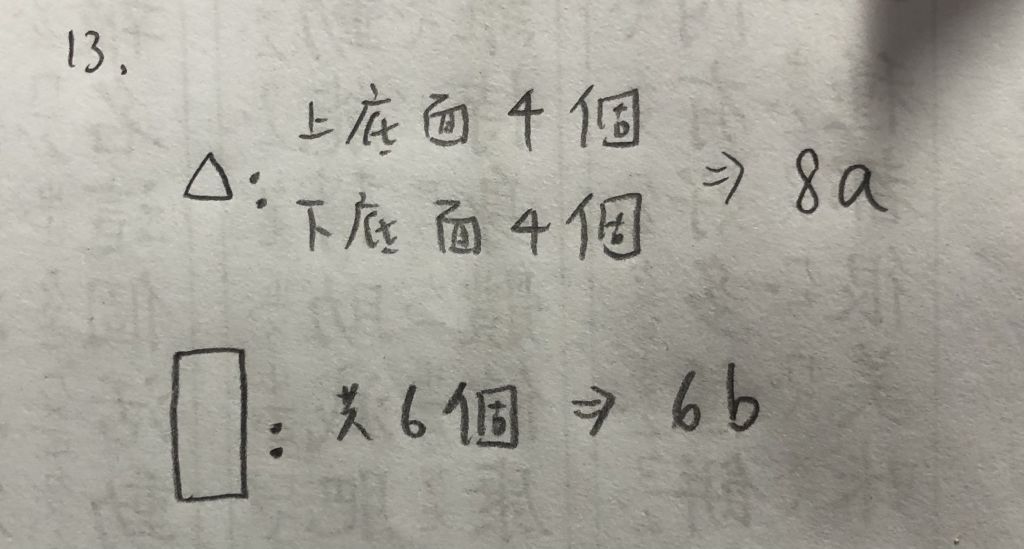 13.
上底面4個
△: ⇒ 8a
下底面4個
▯: 共6個 ⇒ 6b